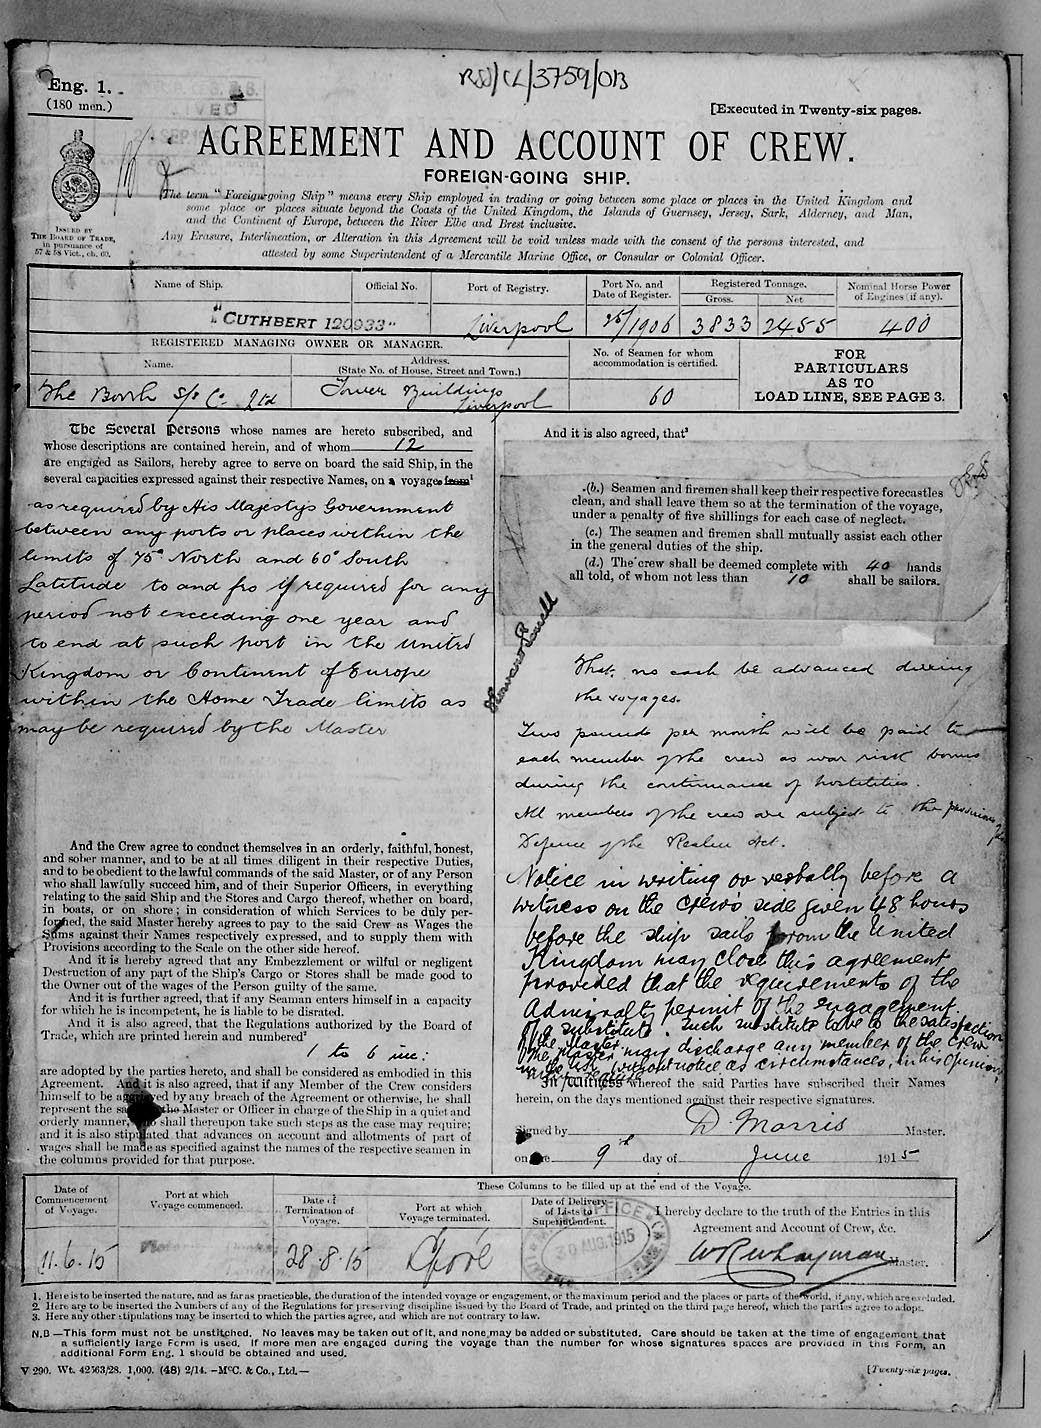 Eng. 1.
(180 men.)
RS/CL/3759/013
[Executed in Twenty-six pages.
AGREEMENT AND ACCOUNT OF CREW.
FOREIGN-GOING SHIP.
ISSUED BY
THE BOARD OF TRADE,
in pursuance of
57 & 58 Vict., ch. 60.
The term "Foreign-going Ship" means every Ship employed in trading or going between some place or places in the United Kingdom and
some place or places situate beyond the Coasts of the United Kingdom, the Islands of Guernsey, Jersey, Sark, Alderney, and Man,
and the Continent of Europe, between the River Elbe and Brest inclusive.
Any Erasure, Interlineation, or Alteration in this Agreement will be void unless made with the consent of the persons interested, and
attested by some Superintendent of a Mercantile Marine Office, or Consular or Colonial Officer.
Name of Ship. Official No. Port of Registry. Port No. and Date of Register. Registered Tonnage. Gross. Net Nominal Horse Power of Engines (if any).
"CUTHBERT 120933" Liverpool 25/1906 3833 2455 400
REGISTERED MANAGING OWNER OR MANAGER.
Name. Address. (State No. of House, Street and Town.) No. of Seamen for whom accommodation is certified. FOR PARTICULARS AS TO LOAD LINE, SEE PAGE 3.
The Booth S/S Co Ltd Tower Buildings Liverpool 60
The Several Persons whose names are hereto subscribed, and
whose descriptions are contained herein, and of whom 12
are engaged as Sailors, hereby agree to serve on board the said Ship, in the
several capacities expressed against their respective Names, on a voyage from¹
as required by His Majestys Government
between any ports or places within the
limits of 75° North and 60° South
Latitude to and fro if required for any
period not exceeding one year and
to end at such port in the United
Kingdom or Continent of Europe
within the Home Trade limits as
may be required by the Master
And the Crew agree to conduct themselves in an orderly, faithful, honest,
and sober manner, and to be at all times diligent in their respective Duties,
and to be obedient to the lawful commands of the said Master, or of any Person
who shall lawfully succeed him, and of their Superior Officers, in everything
relating to the said Ship and the Stores and Cargo thereof, whether on board,
in boats, or on shore; in consideration of which Services to be duly per-
formed, the said Master hereby agrees to pay to the said Crew as Wages the
Sums against their Names respectively expressed, and to supply them with
Provisions according to the Scale on the other side hereof.
And it is hereby agreed that any Embezzlement or wilful or negligent
Destruction of any part of the Ship's Cargo or Stores shall be made good to
the Owner out of the wages of the Person guilty of the same.
And it is further agreed, that if any Seaman enters himself in a capacity
for which he is incompetent, he is liable to be disrated.
And it is also agreed, that the Regulations authorized by the Board of
Trade, which are printed herein and numbered²
1 to 6 inc:
are adopted by the parties hereto, and shall be considered as embodied in this
Agreement. And it is also agreed, that if any Member of the Crew considers
himself to be aggrieved by any breach of the Agreement or otherwise, he shall
represent the same to the Master or Officer in charge of the Ship in a quiet and
orderly manner, who shall thereupon take such steps as the case may require;
and it is also stipulated that advances on account and allotments of part of
wages shall be made as specified against the names of the respective seamen in
the columns provided for that purpose.
And it is also agreed, that³
(b.) Seamen and firemen shall keep their respective forecastles
clean, and shall leave them so at the termination of the voyage,
under a penalty of five shillings for each case of neglect.
(c.) The seamen and firemen shall mutually assist each other
in the general duties of the ship.
(d.) The crew shall be deemed complete with 40 hands
all told, of whom not less than 10 shall be sailors.
That no cash be advanced during
the voyages.
Two pounds per month will be paid to
each member of the crew as war risk bonus
during the continuance of hostilities.
All members of the crew are subject to the provisions of the
Defence of the Realm Act.
Notice in writing or verbally before a
witness on the crew's side given 48 hours
before the ship sails from the United
Kingdom may close this agreement
provided that the requirements of the
Admiralty permit of the engagement
of a substitute. Such substitute to be to the satisfaction
of the Master.
The Master may discharge any member of the crew
without notice as circumstances, in his opinion,
In witness whereof the said Parties have subscribed their Names
herein, on the days mentioned against their respective signatures.
Signed by D Morris Master.
on the 9th day of June 1915
These Columns to be filled up at the end of the Voyage.
Date of Commencement of Voyage. Port at which Voyage commenced. Date of Termination of Voyage. Port at which Voyage terminated. Date of Delivery of Lists to Superintendent. I hereby declare to the truth of the Entries in this Agreement and Account of Crew, &c.
11.6.15 28.8.15 L'pool 30 AUG. 1915 Master.
1. Here is to be inserted the nature, and as far as practicable, the duration of the intended voyage or engagement, or the maximum period and the places or parts of the world, if any, which are excluded.
2. Here are to be inserted the Numbers of any of the Regulations for preserving discipline issued by the Board of Trade, and printed on the third page hereof, which the parties agree to adopt.
3. Here any other stipulations may be inserted to which the parties agree, and which are not contrary to law.
N.B—This form must not be unstitched. No leaves may be taken out of it, and none may be added or substituted. Care should be taken at the time of engagement that
a sufficiently large Form is used. If more men are engaged during the voyage than the number for whose signatures spaces are provided in this Form, an
additional Form Eng. 1 should be obtained and used.
V 290. Wt. 42563/28. 1,000. (48) 2/14. —McC. & Co., Ltd.—
[Twenty-six pages.